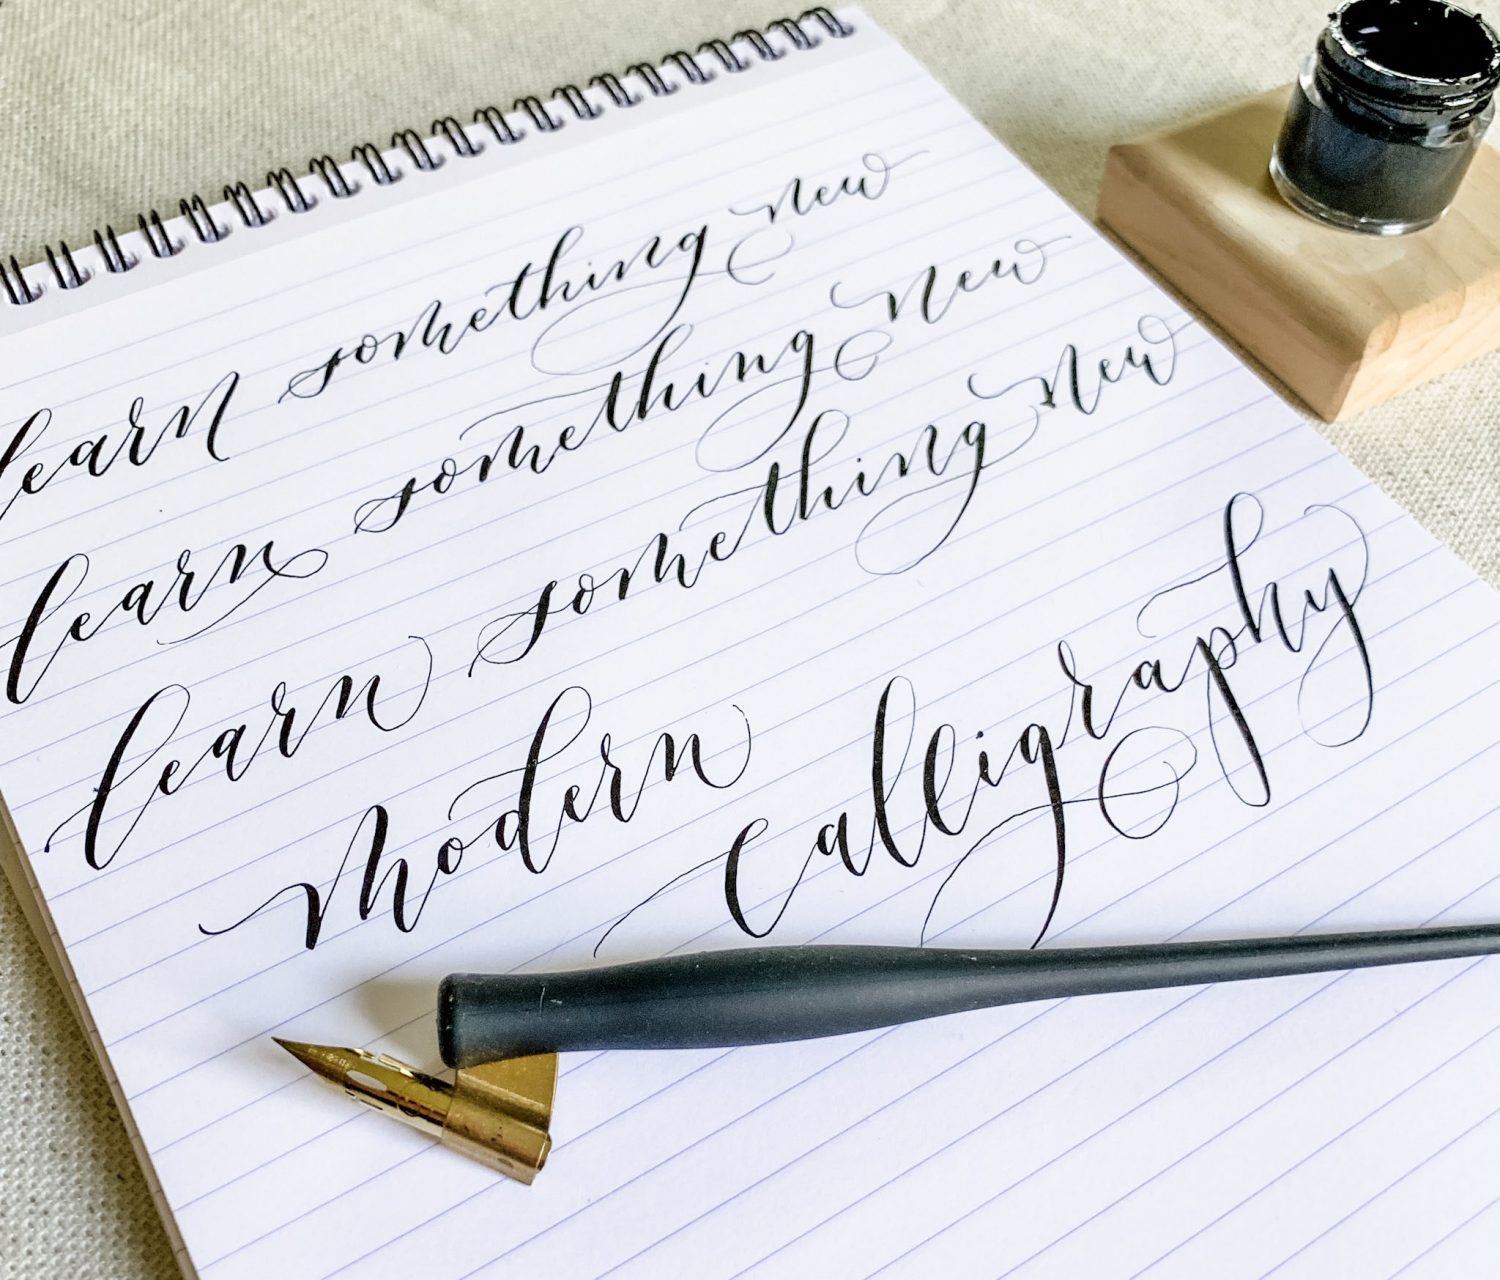 learn something new
learn something new
learn something new
modern calligraphy